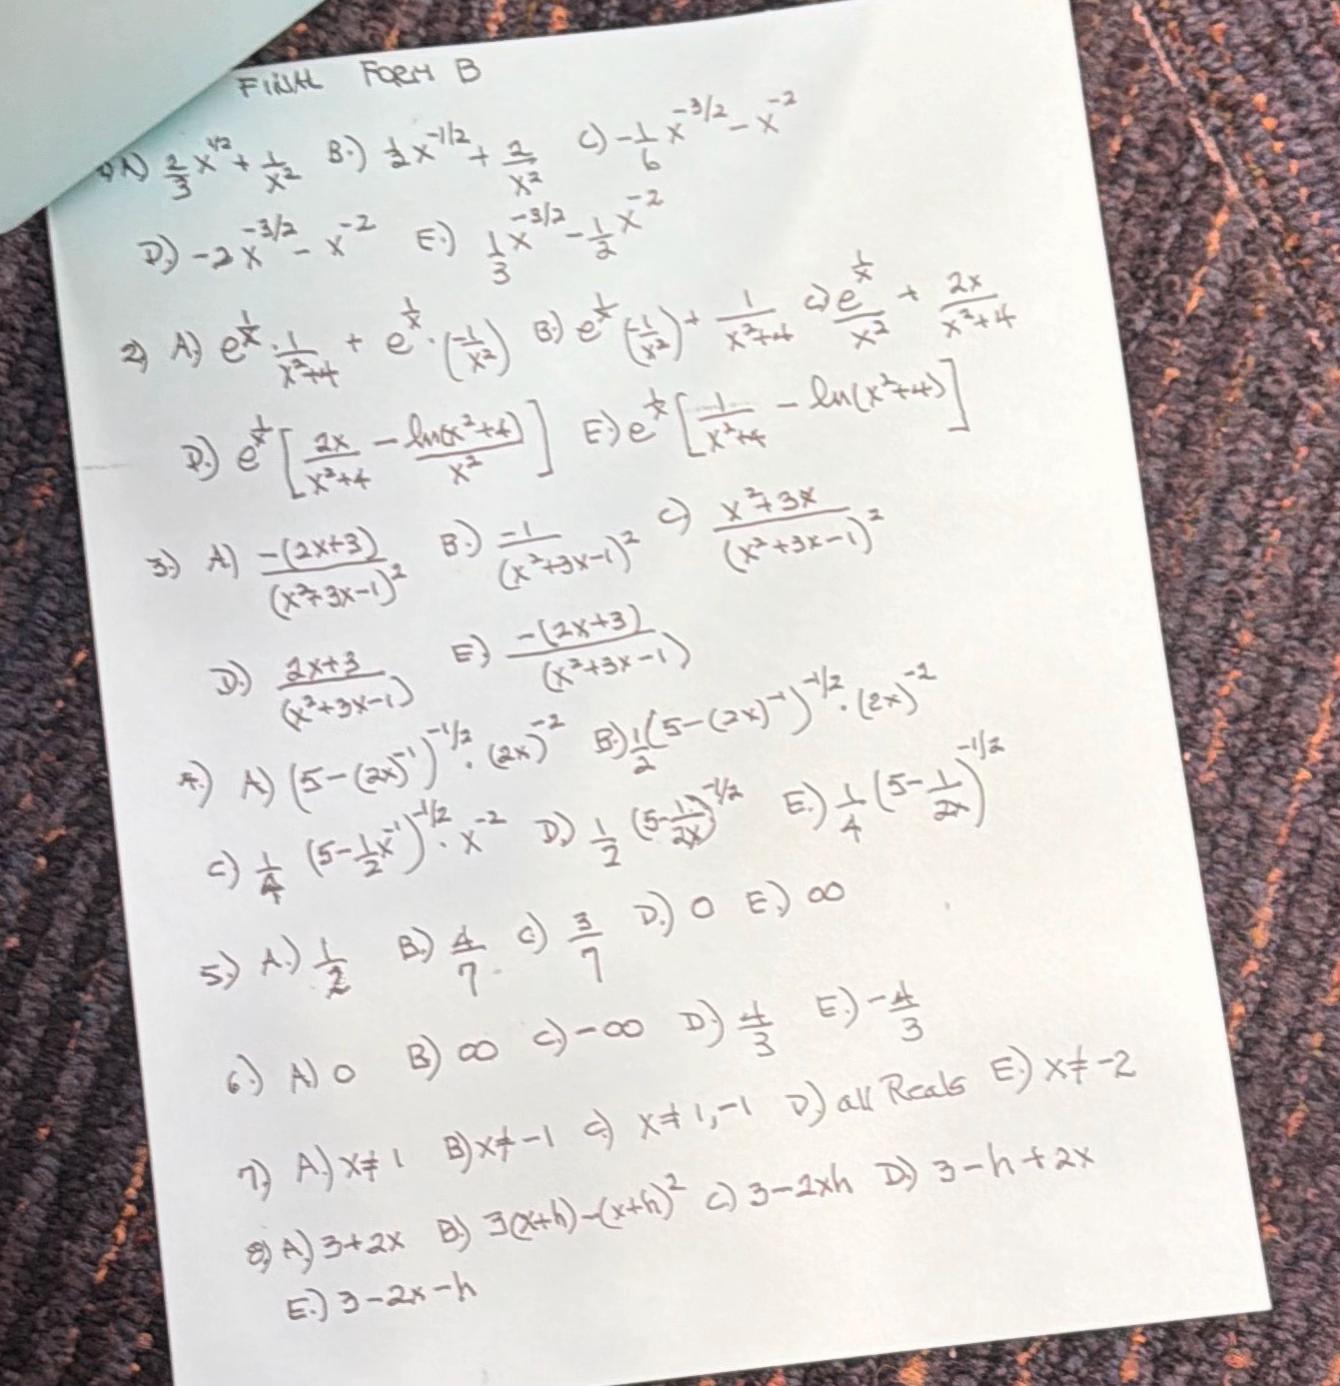 FINAL FORM B
1) A) 2/3 x^1/2 + 1/x² B.) 1/2 x^-1/2 + 2/x² C) -1/6 x^-3/2 - x^-2
D.) -2x^-3/2 - x^-2 E.) 1/3 x^-3/2 - 1/2 x^-2
2) A) e^1/x · 1/x²+4 + e^1/x · (-1/x²) B) e^1/x (-1/x²) + 1/x²+4 C) e^1/x/x² + 2x/x²+4
D.) e^1/x [2x/x²+4 - ln(x²+4)/x²] E.) e^1/x [1/x²+4 - ln(x²+4)]
3.) A) -(2x+3)/(x²+3x-1)² B.) -1/(x²+3x-1)² C) x²+3x/(x²+3x-1)²
D.) 2x+3/(x²+3x-1) E.) -(2x+3)/(x²+3x-1)
4.) A) (5-(2x)^-1)^-1/2 · (2x)^-2 B.) 1/2 (5-(2x)^-1)^-1/2 · (2x)^-2
C) 1/4 (5-1/2 x^-1)^-1/2 · x^-2 D.) 1/2 (5-1/2x)^-1/2 E.) 1/4 (5-1/2x)^-1/2
5.) A.) 1/2 B.) 4/7 C) 3/7 D.) 0 E.) ∞
6.) A) 0 B) ∞ C) -∞ D) 4/3 E.) -4/3
7.) A.) x≠1 B) x≠-1 C) x≠1,-1 D.) all Reals E.) x≠-2
8) A) 3+2x B) 3(x+h)-(x+h)² C) 3-2xh D.) 3-h+2x
E.) 3-2x-h